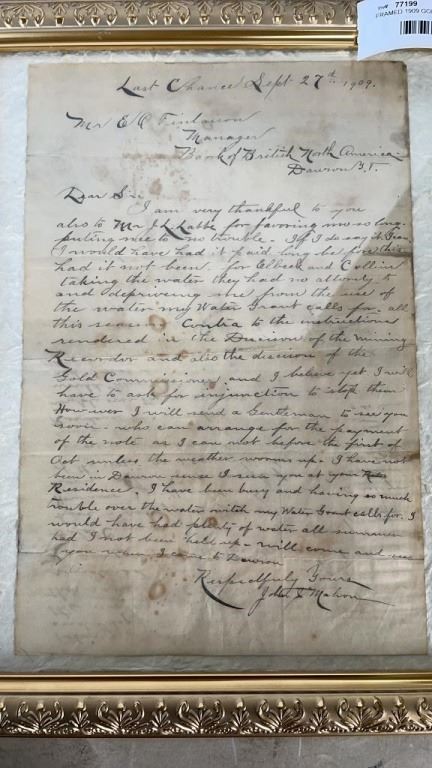 77199
FRAMED 1909 GO
Last Chance Sept 27th 1909.
Mr E C Finlaison
Manager
Bank of British North America
Dawson Y.T.
Dear Sir
I am very thankful to you
also to Mr J. L. Labbe for favoring me so long
puting mee to no trouble. If I do say it
I would have had it paid long before this
had it not been for Elbeck and Collin
taking the water they had no athority to
and depriveing me from the use of
the water my Water Grant calls for, all
this season. Contra to the instructions
rendered in the Decision of the Mining
Recordor and also the decision of the
Gold Commissioner, and I believe yet I will
have to ask for injunction to stop them
However I will send a Gentleman to see you
soon - who can arrange for the payment
of the note as I can not before the first of
Oct unless the weather worms up. I have not
been in Dawson since I seen you at your
Residence. I have been busy and having so much
trouble over the water witch my Water Grant calls for. I
would have had plenty of water all summer
had I not been held up - will come and see
you when I come to Dawson
Respectfuly Yours
John Mahon